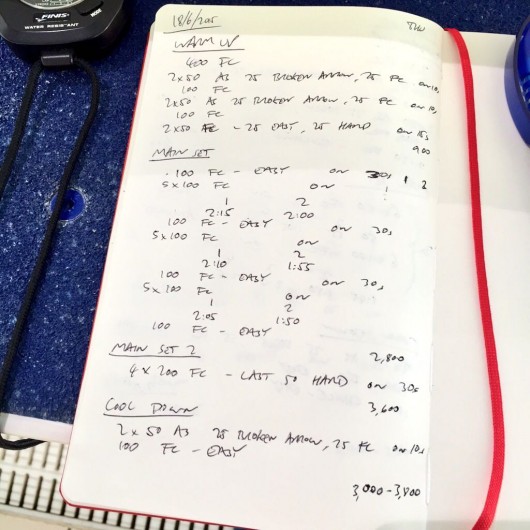 FINIS
MODE
WATER RESISTANT
18/6/2015 THU
WARM UP
400 FC
2x50 AS 25 BROKEN ARROW, 25 FC on 10s
100 FC
2x50 AS 25 BROKEN ARROW, 25 FC on 10s
100 FC
2x50 FC - 25 EASY, 25 HARD on 15s
900
MAIN SET
100 FC - EASY on 30s 1 2
5x100 FC on
1 2
2:15 2:00
100 FC - EASY on 30s
5x100 FC on
1 2
2:10 1:55
100 FC - EASY on 30s
5x100 FC on
1 2
2:05 1:50
100 FC - EASY
2,800
MAIN SET 2
4 x 200 FC - LAST 50 HARD on 30s
3,600
COOL DOWN
2 x 50 AS 25 BROKEN ARROW, 25 FC on 10s
100 FC - EASY
3,000-3,800